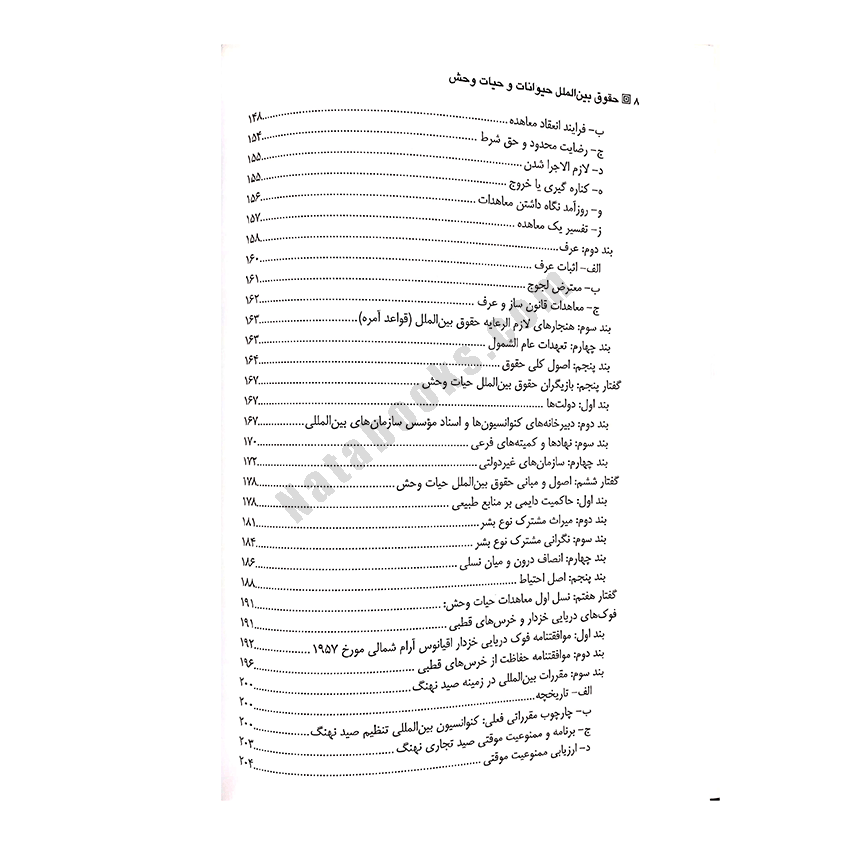 ۸ حقوق بین‌الملل حیوانات و حیات وحش
ب- فرایند انعقاد معاهده ........ ۱۴۸
ج- رضایت محدود و حق شرط ........ ۱۵۴
د- لازم الاجرا شدن ........ ۱۵۵
ه- کناره گیری یا خروج ........ ۱۵۵
و- روزآمد نگاه داشتن معاهدات ........ ۱۵۶
ز- تفسیر یک معاهده ........ ۱۵۷
بند دوم: عرف ........ ۱۵۸
الف- اثبات عرف ........ ۱۶۰
ب- معترض لجوج ........ ۱۶۱
ج- معاهدات قانون ساز و عرف ........ ۱۶۲
بند سوم: هنجارهای لازم الرعایه حقوق بین‌الملل (قواعد آمره) ........ ۱۶۳
بند چهارم: تعهدات عام الشمول ........ ۱۶۳
بند پنجم: اصول کلی حقوق ........ ۱۶۴
گفتار پنجم: بازیگران حقوق بین‌الملل حیات وحش ........ ۱۶۷
بند اول: دولت‌ها ........ ۱۶۷
بند دوم: دبیرخانه‌های کنوانسیون‌ها و اسناد مؤسس سازمان‌های بین‌المللی ........ ۱۶۷
بند سوم: نهادها و کمیته‌های فرعی ........ ۱۷۰
بند چهارم: سازمان‌های غیردولتی ........ ۱۷۲
گفتار ششم: اصول و مبانی حقوق بین‌الملل حیات وحش ........ ۱۷۸
بند اول: حاکمیت دایمی بر منابع طبیعی ........ ۱۷۸
بند دوم: میراث مشترک نوع بشر ........ ۱۸۱
بند سوم: نگرانی مشترک نوع بشر ........ ۱۸۴
بند چهارم: انصاف درون و میان نسلی ........ ۱۸۶
بند پنجم: اصل احتیاط ........ ۱۸۸
گفتار هفتم: نسل اول معاهدات حیات وحش: ........ ۱۹۱
فوک‌های دریایی خزدار و خرس‌های قطبی ........ ۱۹۱
بند اول: موافقتنامه فوک دریایی خزدار اقیانوس آرام شمالی مورخ ۱۹۵۷ ........ ۱۹۲
بند دوم: موافقتنامه حفاظت از خرس‌های قطبی ........ ۱۹۶
بند سوم: مقررات بین‌المللی در زمینه صید نهنگ ........ ۲۰۰
الف- تاریخچه ........ ۲۰۰
ب- چارچوب مقرراتی فعلی: کنوانسیون بین‌المللی تنظیم صید نهنگ ........ ۲۰۰
ج- برنامه و ممنوعیت موقتی صید تجاری نهنگ ........ ۲۰۳
د- ارزیابی ممنوعیت موقتی ........ ۲۰۴
Natabooks.com